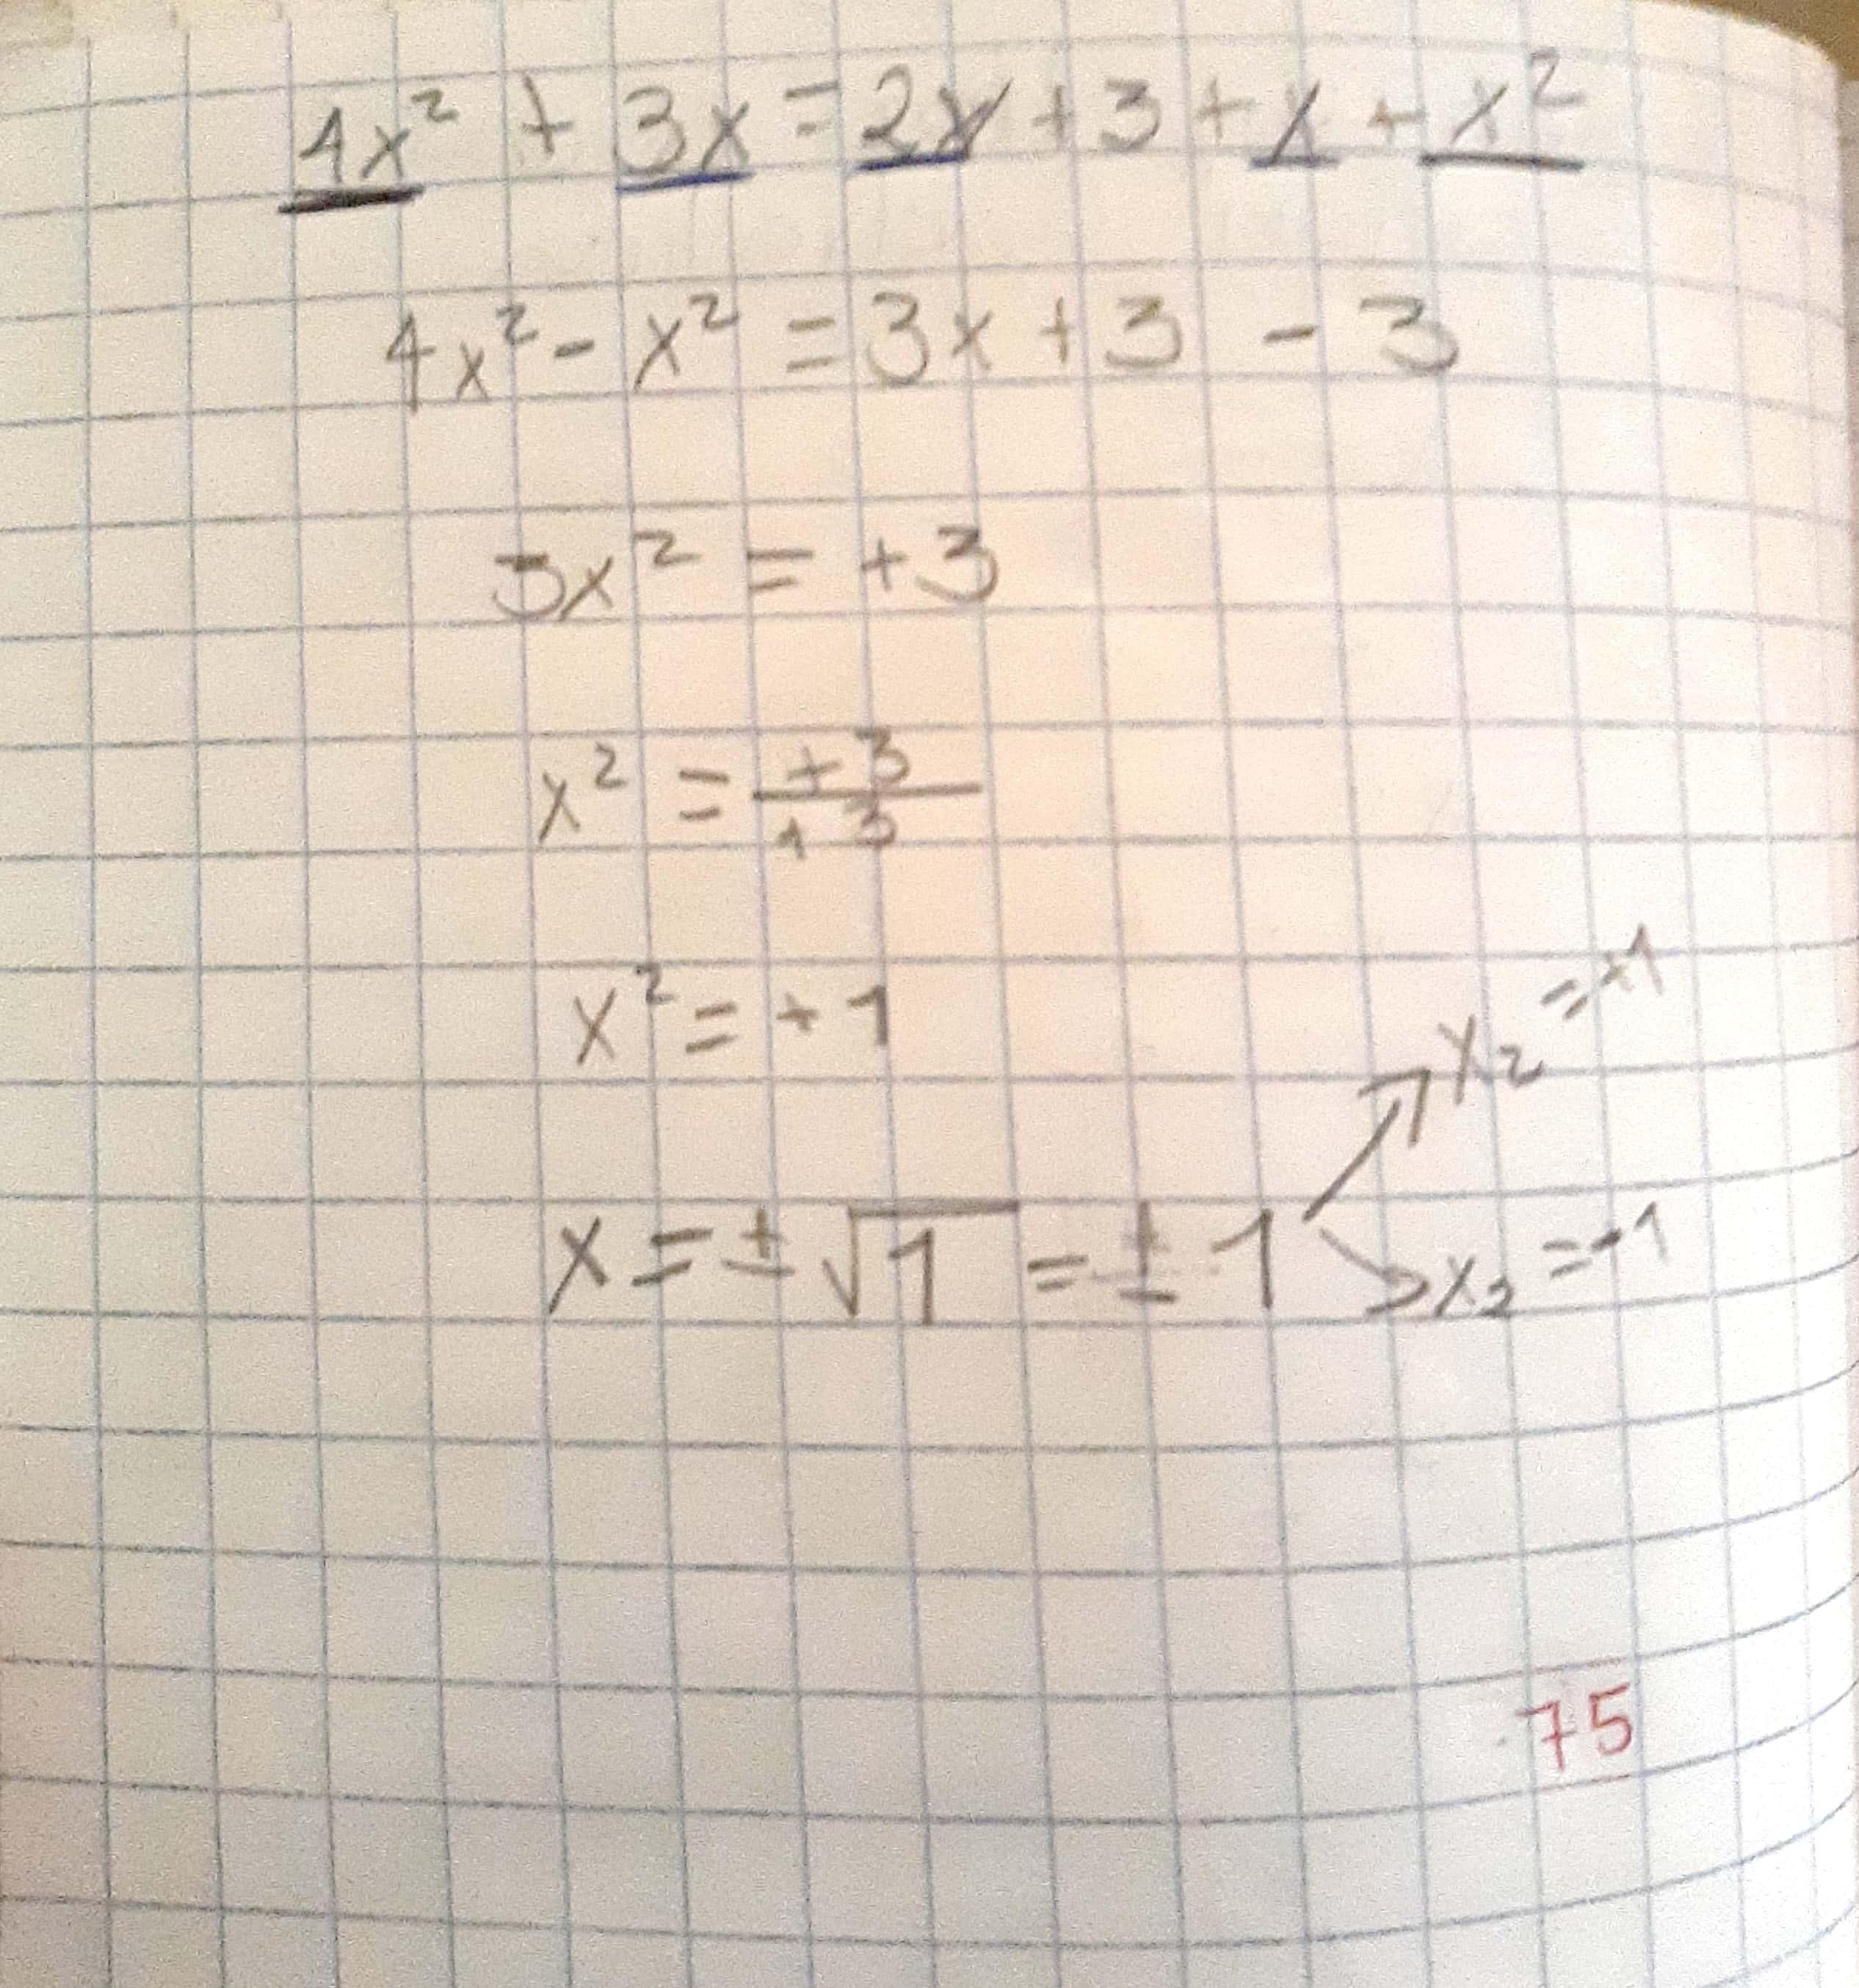 4x² + 3x = 2x + 3 + x + x²
4x² - x² = 3x + 3 - 3
3x² = +3
x² = +3/+3
x² = +1
x₂ = +1
x = ±√1 = ±1
x₂ = -1
75